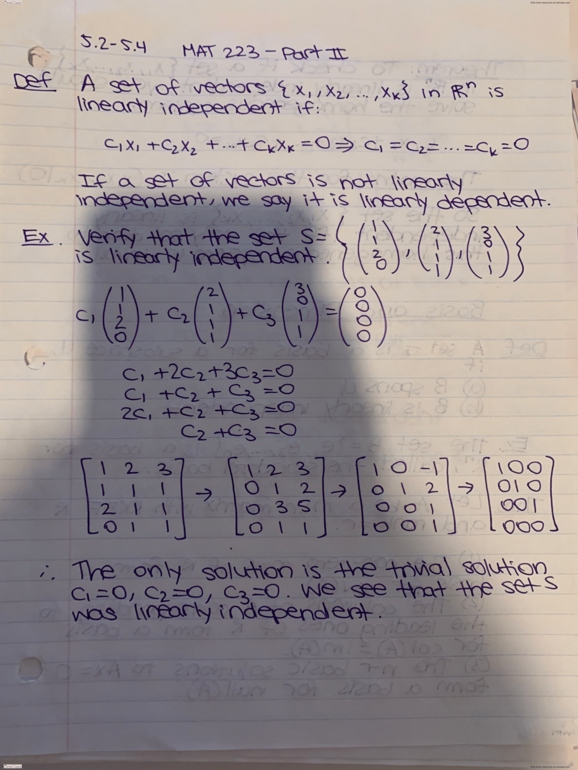 5.2-5.4 MAT 223 - Part II
Def A set of vectors {x₁, x₂, ..., xₖ} in ℝⁿ is
linearly independent if:
C₁x₁ + C₂x₂ + ... + Cₖxₖ = 0 ⇒ C₁ = C₂ = ... = Cₖ = 0
If a set of vectors is not linearly
independent, we say it is linearly dependent.
Ex. Verify that the set S = { (1 1 2 0), (2 1 1 1), (3 0 1 1) }
is linearly independent.
C₁ (1 1 2 0) + C₂ (2 1 1 1) + C₃ (3 0 1 1) = (0 0 0 0)
C₁ + 2C₂ + 3C₃ = 0
C₁ + C₂ + C₃ = 0
2C₁ + C₂ + C₃ = 0
C₂ + C₃ = 0
[1 2 3] → [1 2 3] → [1 0 -1] → [1 0 0]
[1 1 1] [0 1 2] [0 1 2] [0 1 0]
[2 1 1] [0 3 5] [0 0 1] [0 0 1]
[0 1 1] [0 1 1] [0 0 1] [0 0 0]
∴ The only solution is the trivial solution
C₁=0, C₂=0, C₃=0. We see that the set S
was linearly independent.